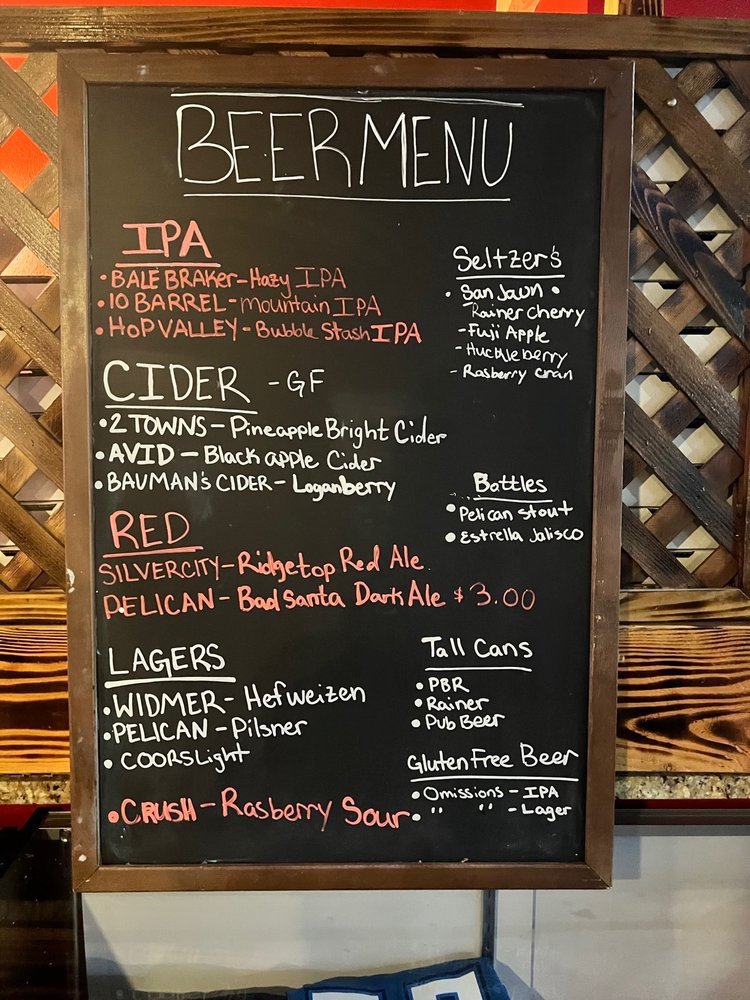 BEER MENU
IPA
• BALE BRAKER - Hazy IPA
• 10 BARREL - mountain IPA
• HOP VALLEY - Bubble Stash IPA
CIDER - GF
• 2 TOWNS - Pineapple Bright Cider
• AVID - Black apple Cider
• BAUMAN'S CIDER - Loganberry
RED
SILVERCITY - Ridgetop Red Ale
PELICAN - Bad Santa Dark Ale $3.00
LAGERS
• WIDMER - Hefweizen
• PELICAN - Pilsner
• COORS Light
• CRUSH - Rasberry Sour
Seltzer's
• San Jaun •
Rainer cherry
- Fuji Apple
- Huckleberry
- Rasberry cran
Bottles
• Pelican stout
• Estrella Jalisco
Tall Cans
• PBR
• Rainer
• Pub Beer
Gluten Free Beer
• Omissions - IPA
• " " - Lager